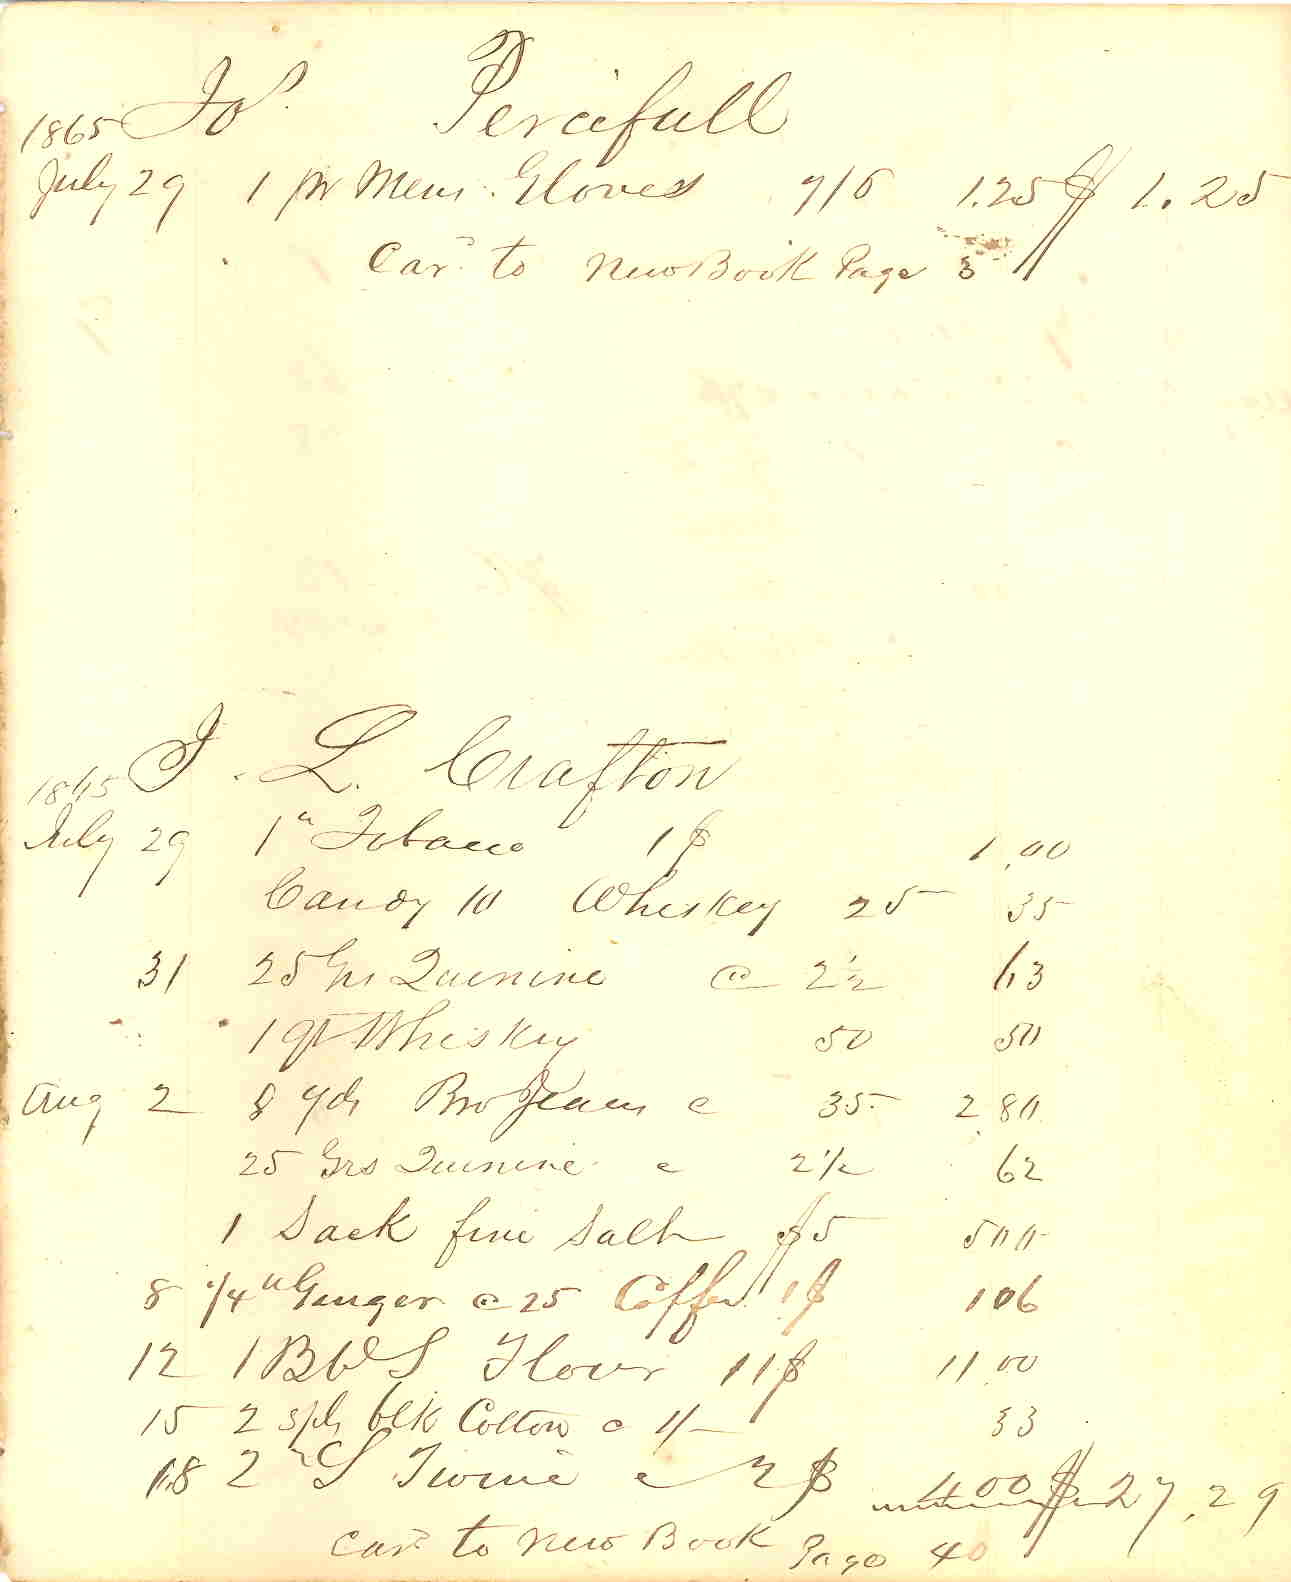 1865 Jos. Percifull
July 29 1 pr Mens Gloves 7/6 1.25 $ 1.25
Card to New Book Page 3
1865 J. L. Crafton
July 29 1 " Tobacco 1$ 1.00
Candy 10 Whiskey 25 35
31 25 Grs Quinine @ 2½ 63
1 qt Whiskey 50 50
Aug 2 8 yds Bro Jeans @ 35 2 80
25 Grs Quinine @ 2½ 62
1 Sack fine Salt $5 500
8 ¼ " Ginger @ 25 Coffee 1$ 106
12 1 Bbl S Flour 11$ 11 00
15 2 sps blk Cotton @ 1/- 33
18 2 " S Twine @ 2$ 4.00 $ 27,29
Card to New Book Page 40